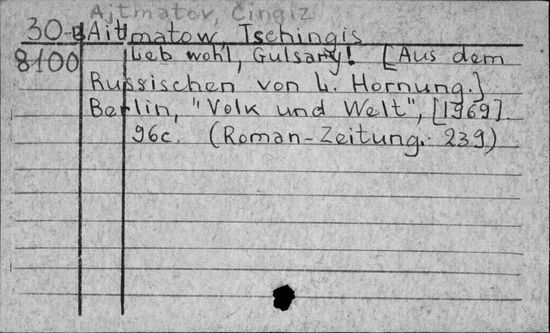 Ajtmatov, Čingiz
30-B Aitmatow, Tschingis
8100 Leb wohl, Gulsary! [Aus dem
Russischen von L. Hornung.]
Berlin, "Volk und Welt", [1969].
96c. (Roman-Zeitung. 239)